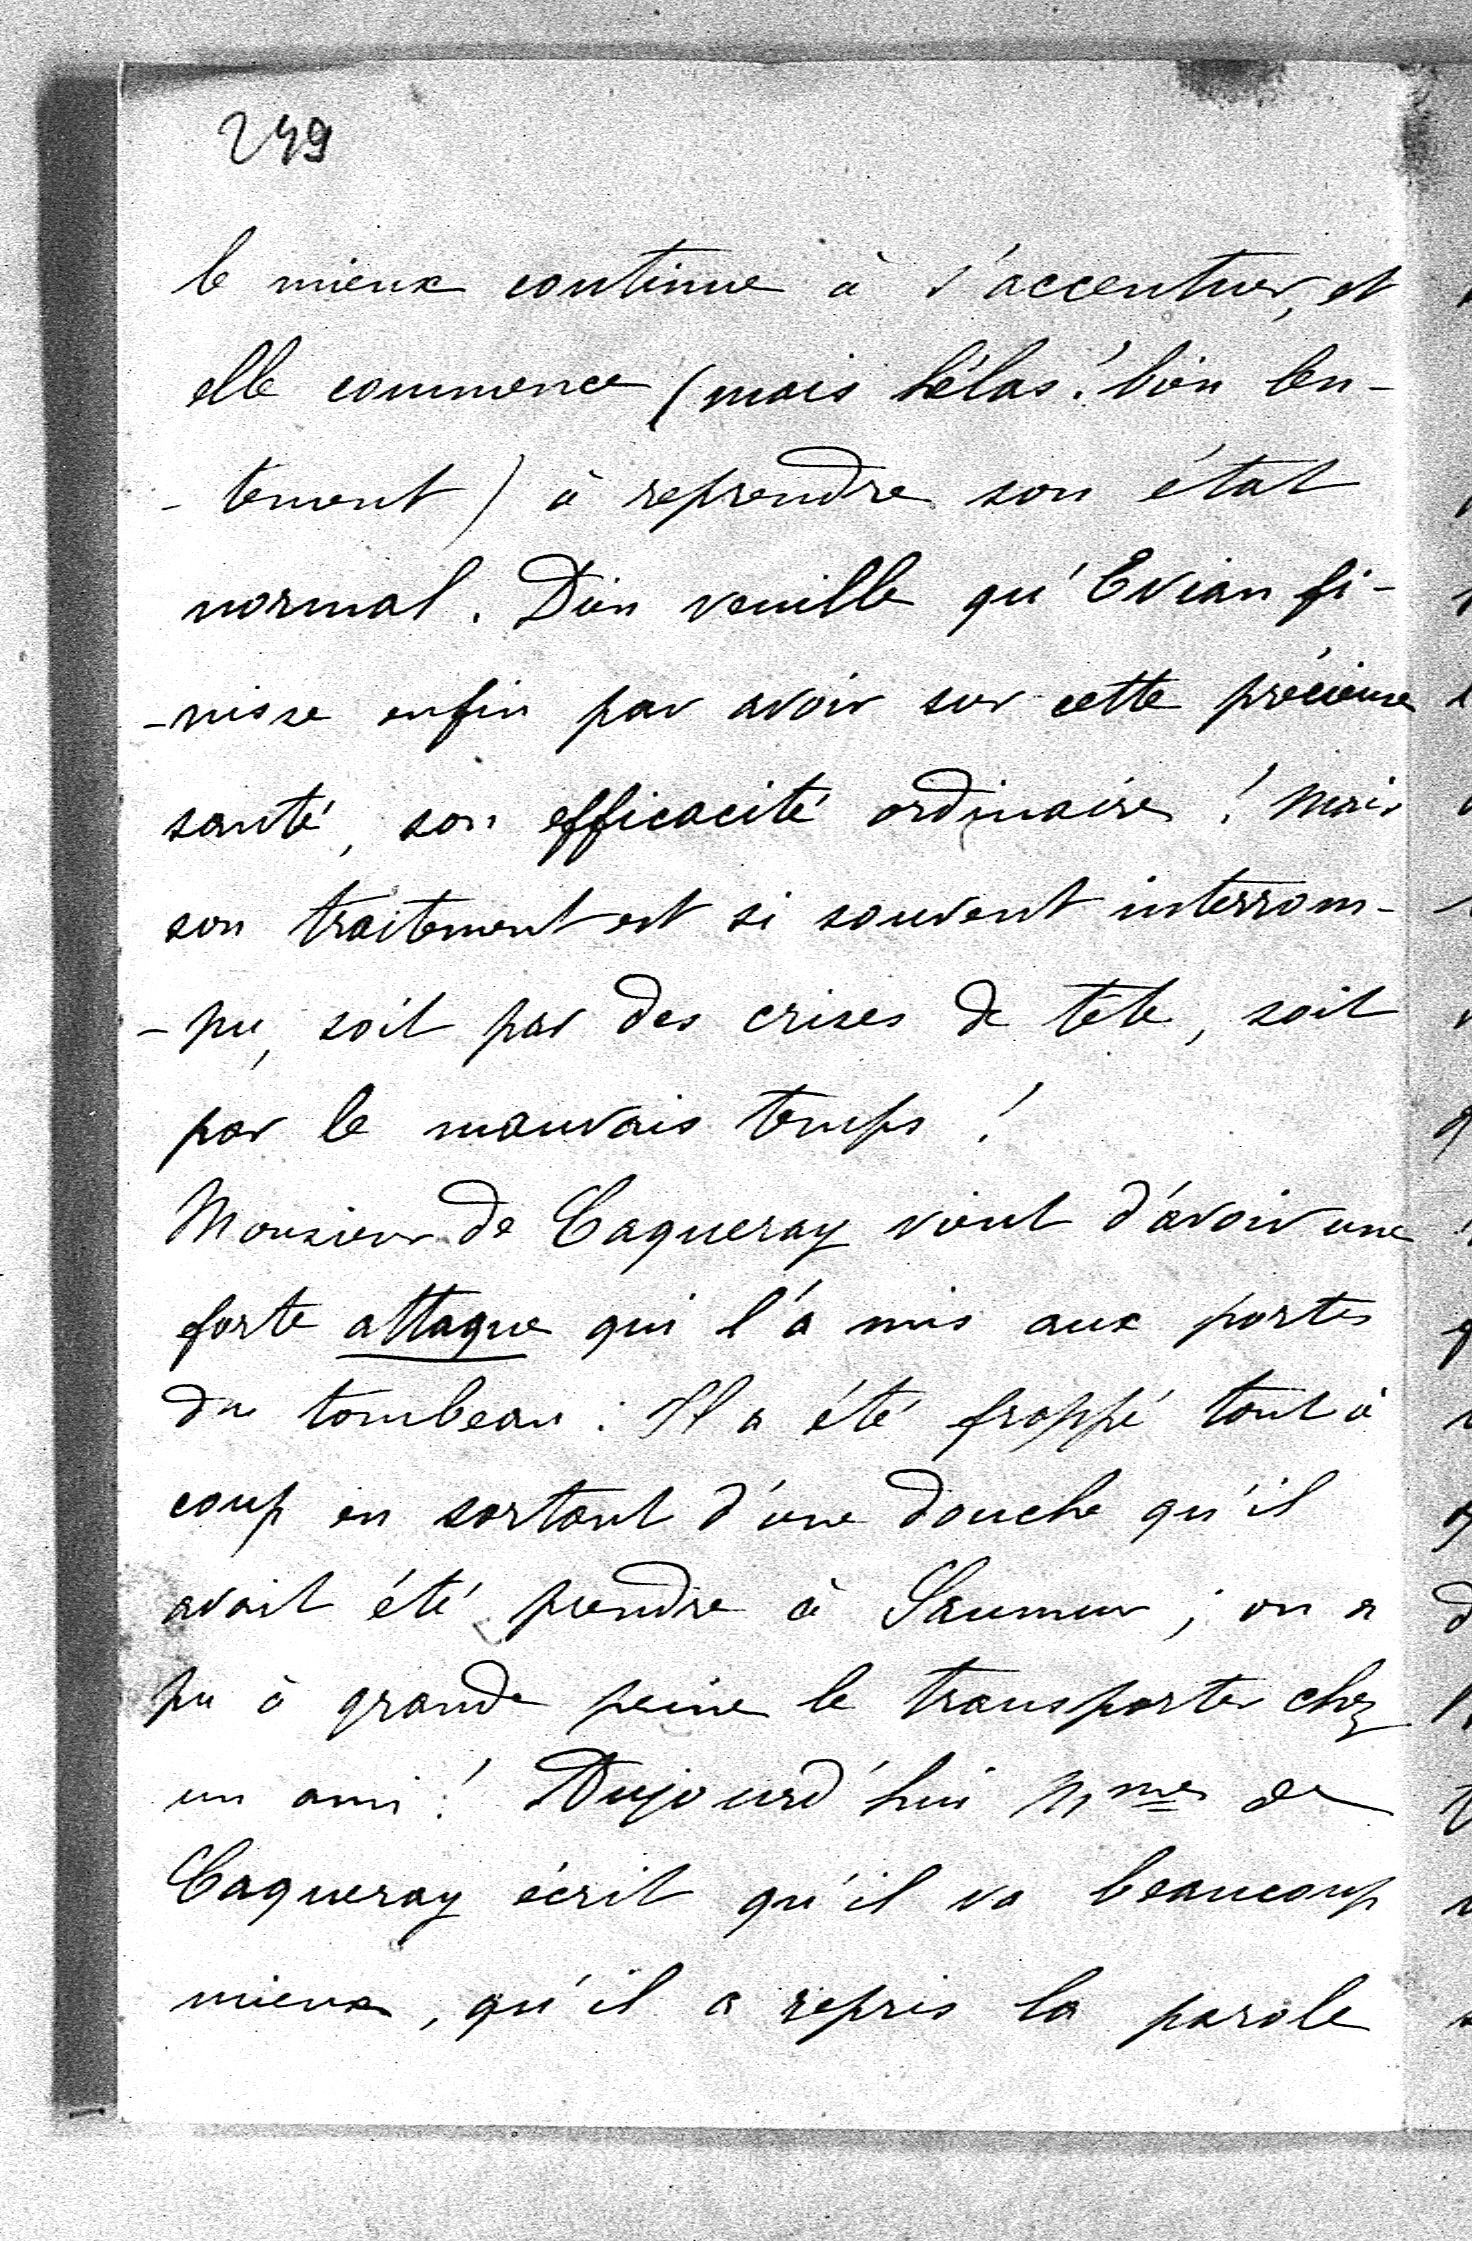 249
le mieux continue à s'accentuer, et
elle commence (mais hélas! bien len-
-tement) à reprendre son état
normal. Dieu veuille qu'Evian fi-
-nisse enfin par avoir sur cette précieuse
santé, son efficacité ordinaire ! Mais
son traitement est si souvent interrom-
-pu, soit par des crises de tête, soit
par le mauvais temps !
Monsieur de Caqueray vient d'avoir une
forte attaque qui l'a mis aux portes
du tombeau : Il a été frappé tout à
coup en sortant d'une douche qu'il
avait été prendre à Saumur ; on a
pu à grande peine le transporter chez
un ami ! Aujourd'hui Mme de
Caqueray écrit qu'il va beaucoup
mieux, qu'il a repris la parole